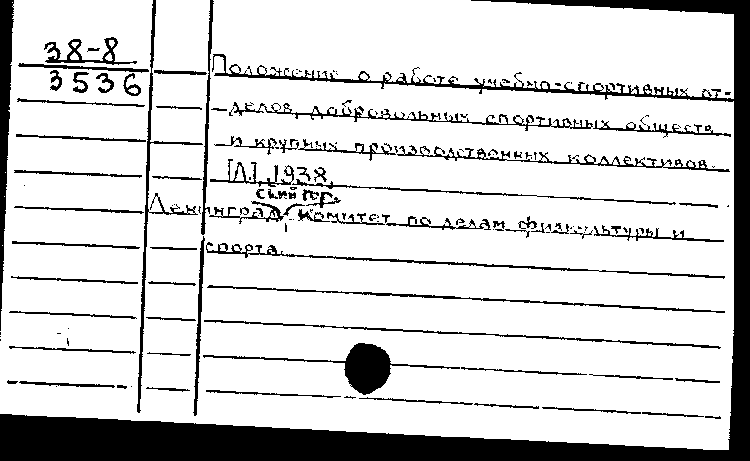 38-8
3536
Положение о работе учебно-спортивных от-
делов, добровольных спортивных обществ
и крупных производственных коллективов.
[Л], 1938,
ский гор.
Ленинград комитет по делам физкультуры и
спорта.